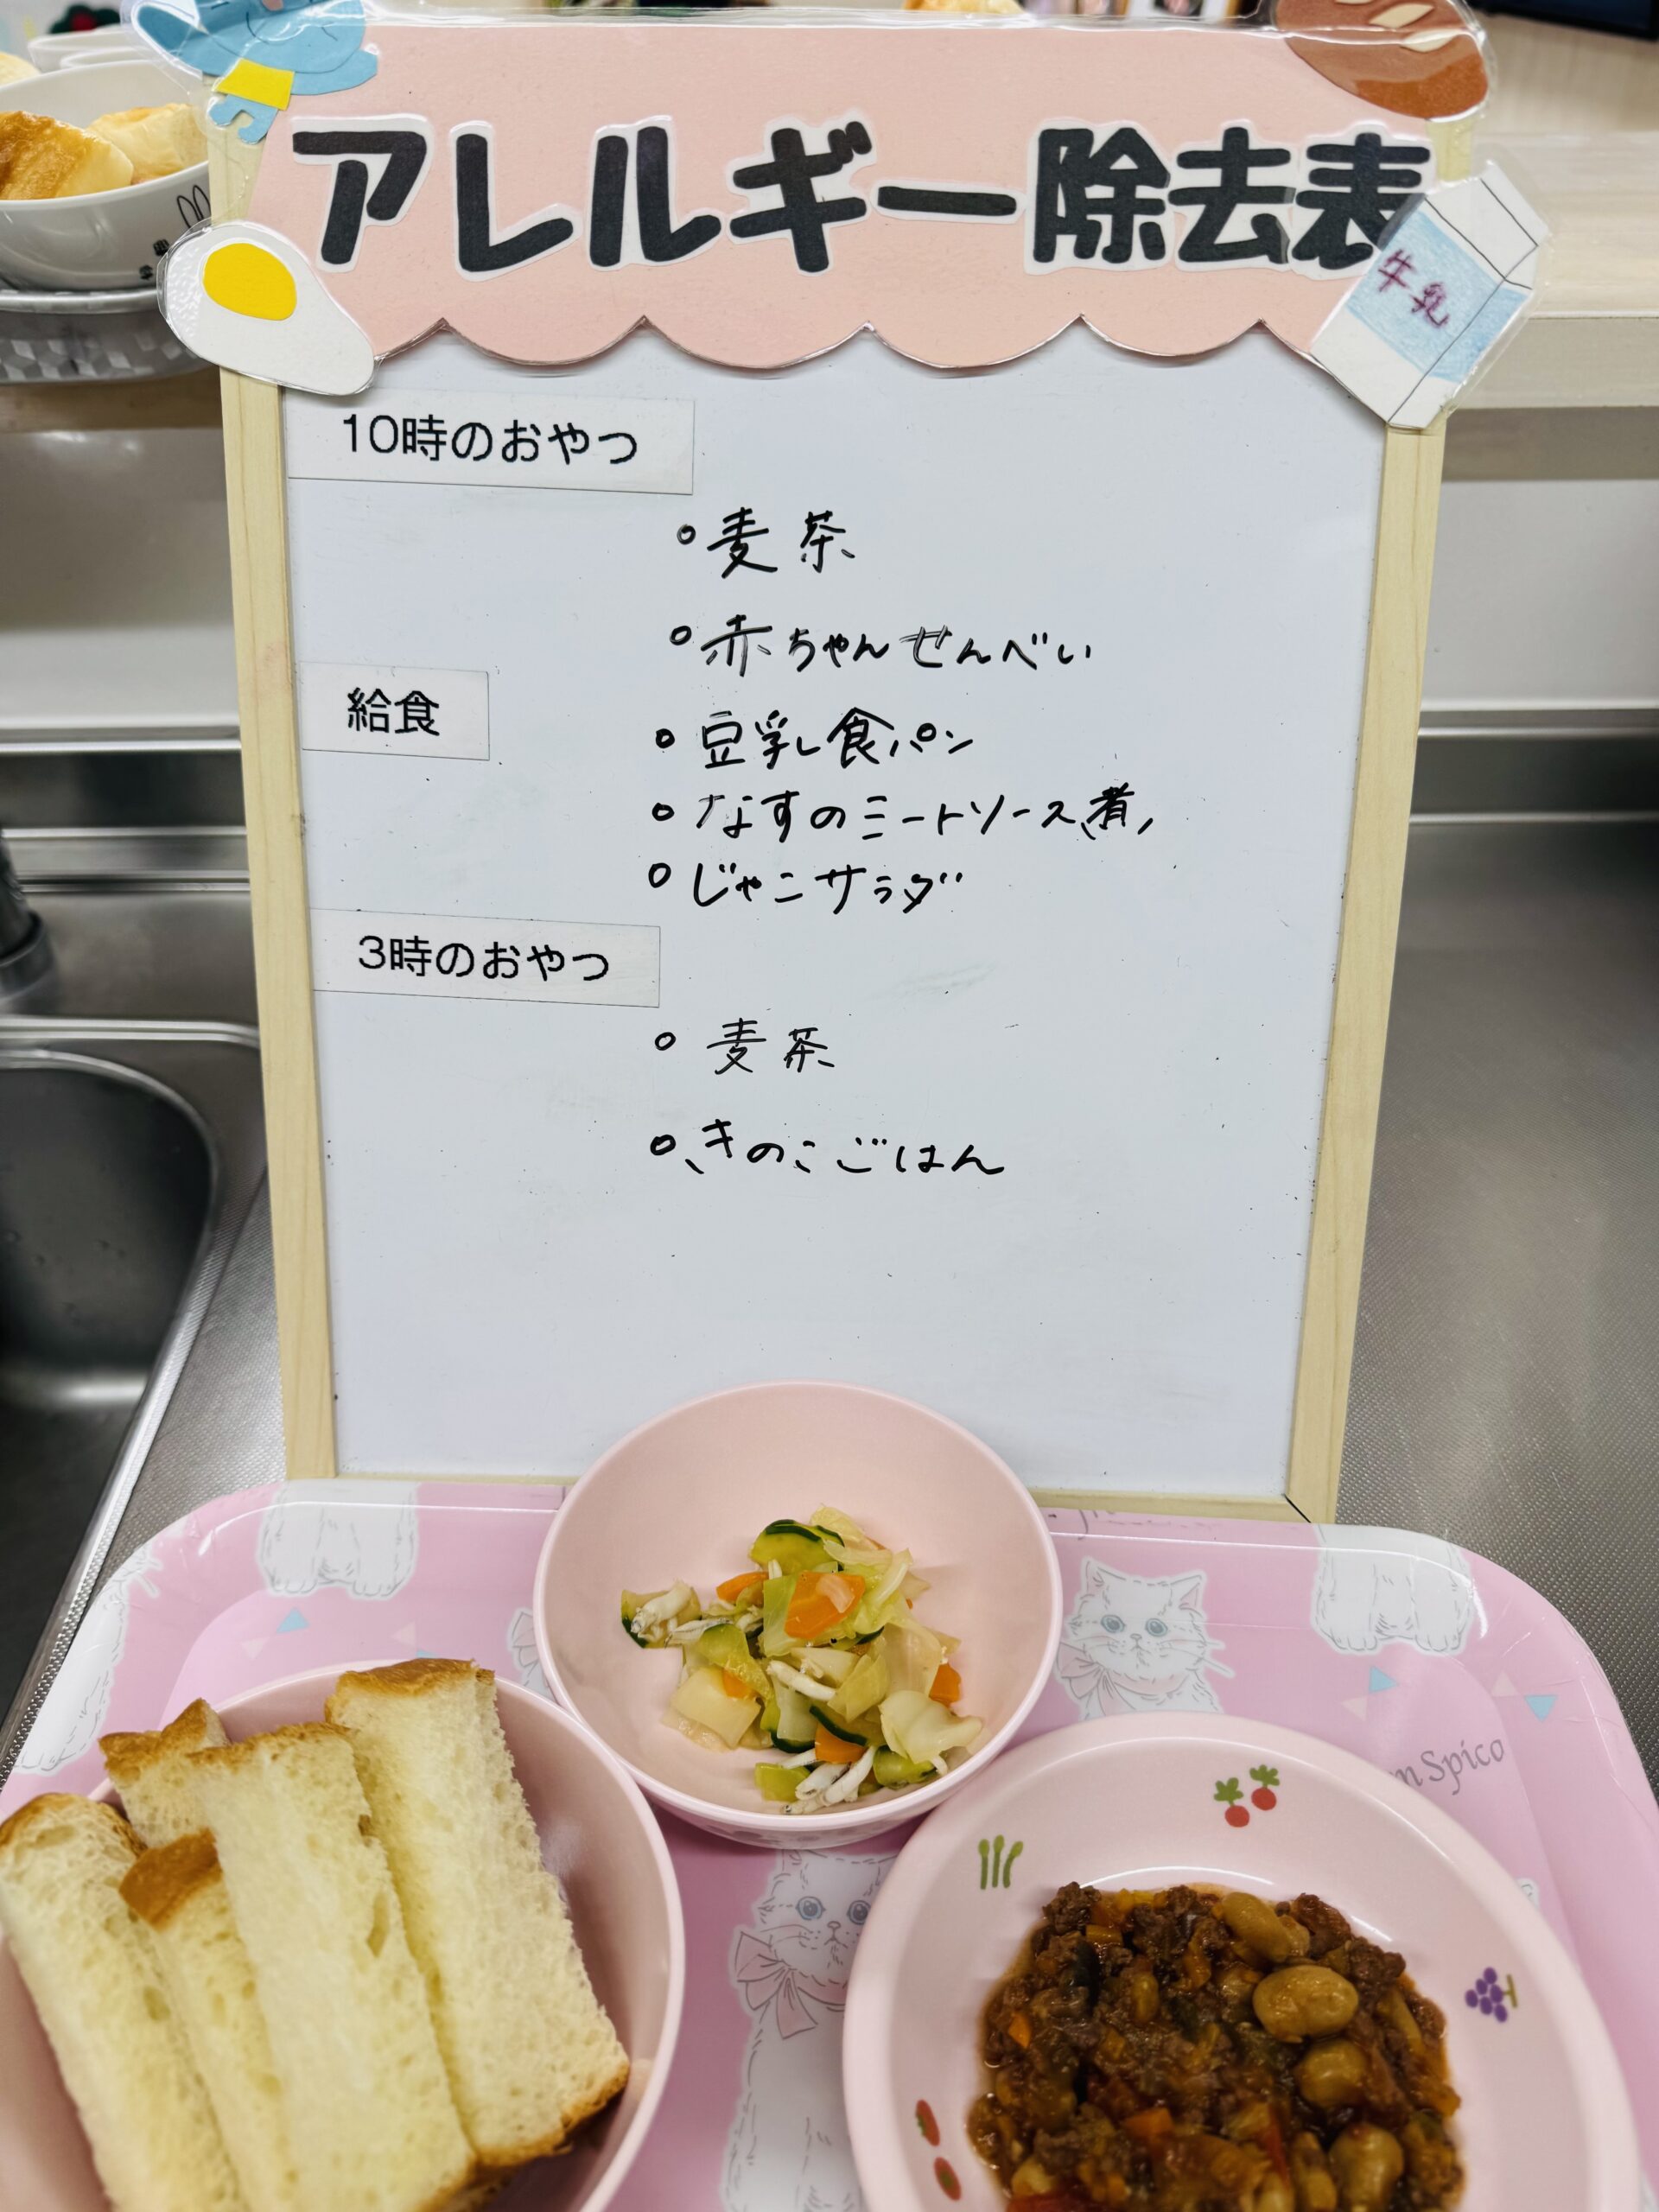 アレルギー除去表
牛乳
10時のおやつ
麦茶
赤ちゃんせんべい
給食
豆乳食パン
なすのミートソース煮
じゃこサラダ
3時のおやつ
麦茶
きのこごはん
Spico